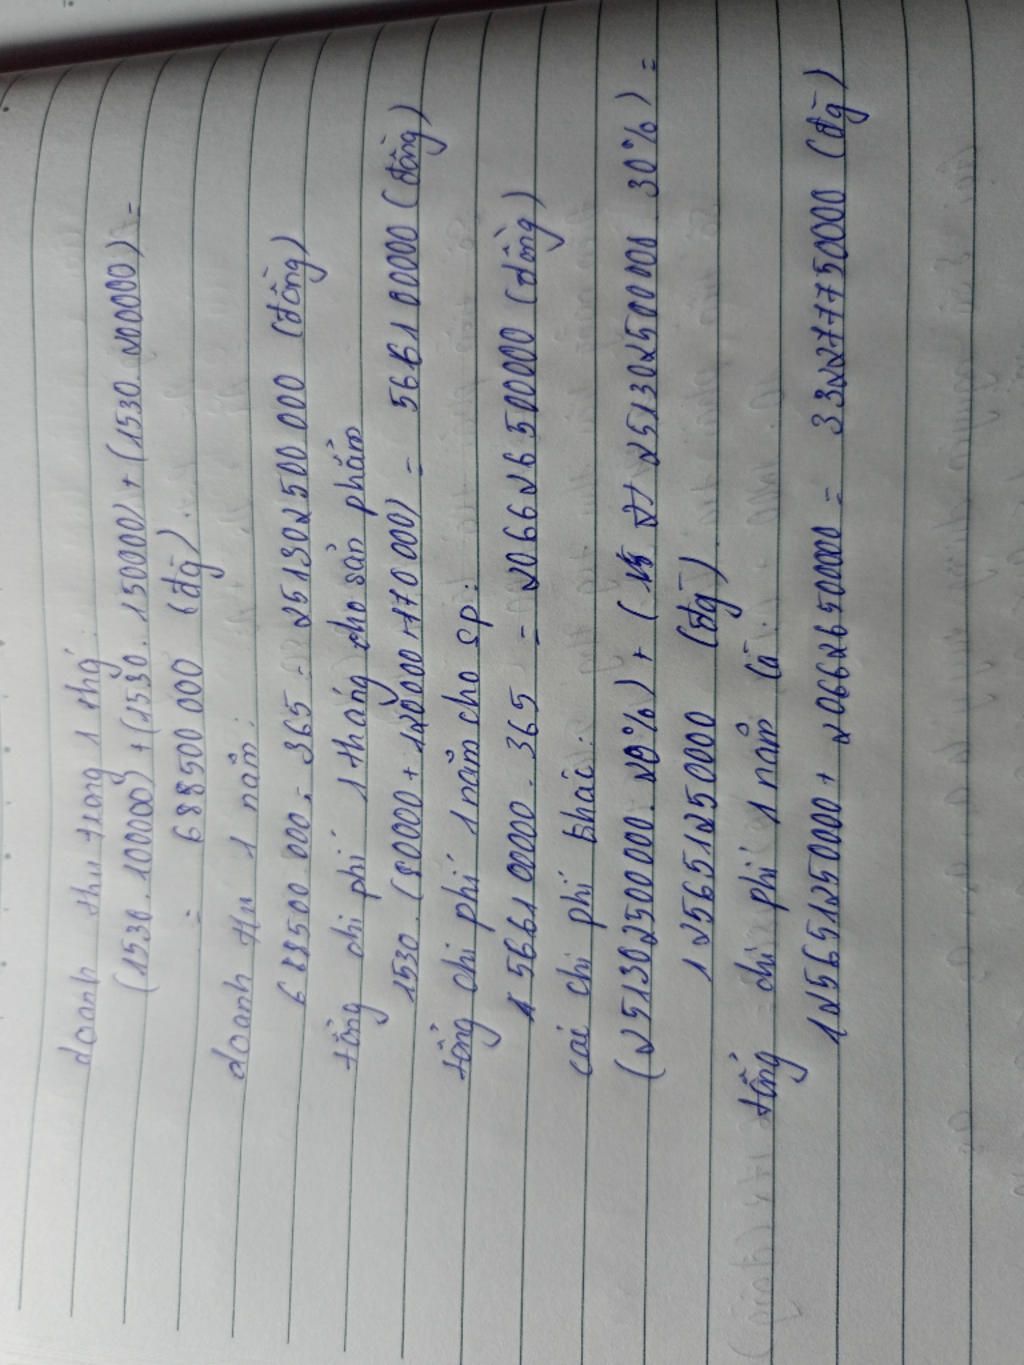 doanh thu trong 1 thg
(1530.100000) + (1530.150000) + (1530.200000) =
= 688500 000 (đg).
doanh thu 1 năm:
688500 000 . 365 = 251302500 000 (đồng)
tổng chi phí 1 tháng cho sản phẩm
1530.(80000 + 120000 +170 000) = 566100000 (đồng)
tổng chi phí 1 năm cho sp:
566100000 . 365 = 206626500000 (đồng)
các chi phí khác:
(251302500 000. 20%) + ( 251302500 000 30%) =
125651250000 (đg)
tổng chi phí 1 năm là:
125651250000 + 206626500000 = 332277750000 (đg)